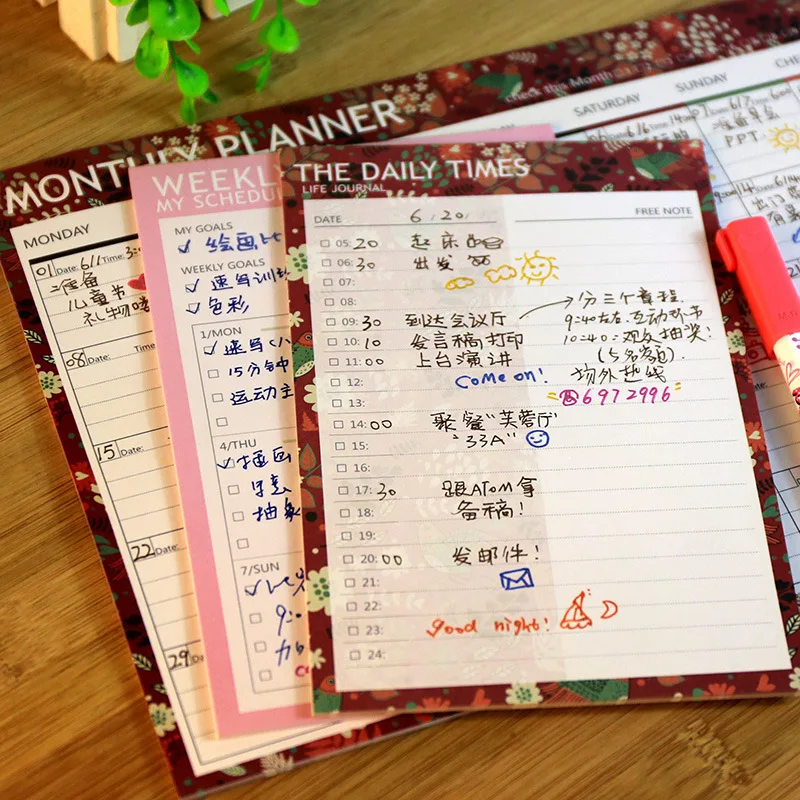 MONTHLY PLANNER
check the Month
SATURDAY
SUNDAY
MONDAY
01 Date: 6/1 Time: 3:
准备
儿童节
礼物喽
08 Date: Time:
15 Date:
22 Date:
29
PPT
WEEKLY
MY SCHEDU
MY GOALS
绘画
WEEKLY GOALS
速写训
色彩
1/MON
速写
15分钟
运动
4/THU
插画
抽象
7/SUN
9:0
THE DAILY TIMES
LIFE JOURNAL
DATE 6/20/ FREE NOTE
05:20 起床
06:30 出发
07:
08:
09:30 到达会议厅 分三个章程.
9:40左右 互动环节
10:10 发言稿打印 10:40:观众抽奖!
11:00 上台演讲 (5名额).
场外热线
12: Come on!
☎6972996
13:
14:00 聚餐"芙蓉厅
15: "33A"
16:
17:30 跟ATOM拿
18: 备稿!
19:
20:00 发邮件!
21:
22:
23: good night!
24: